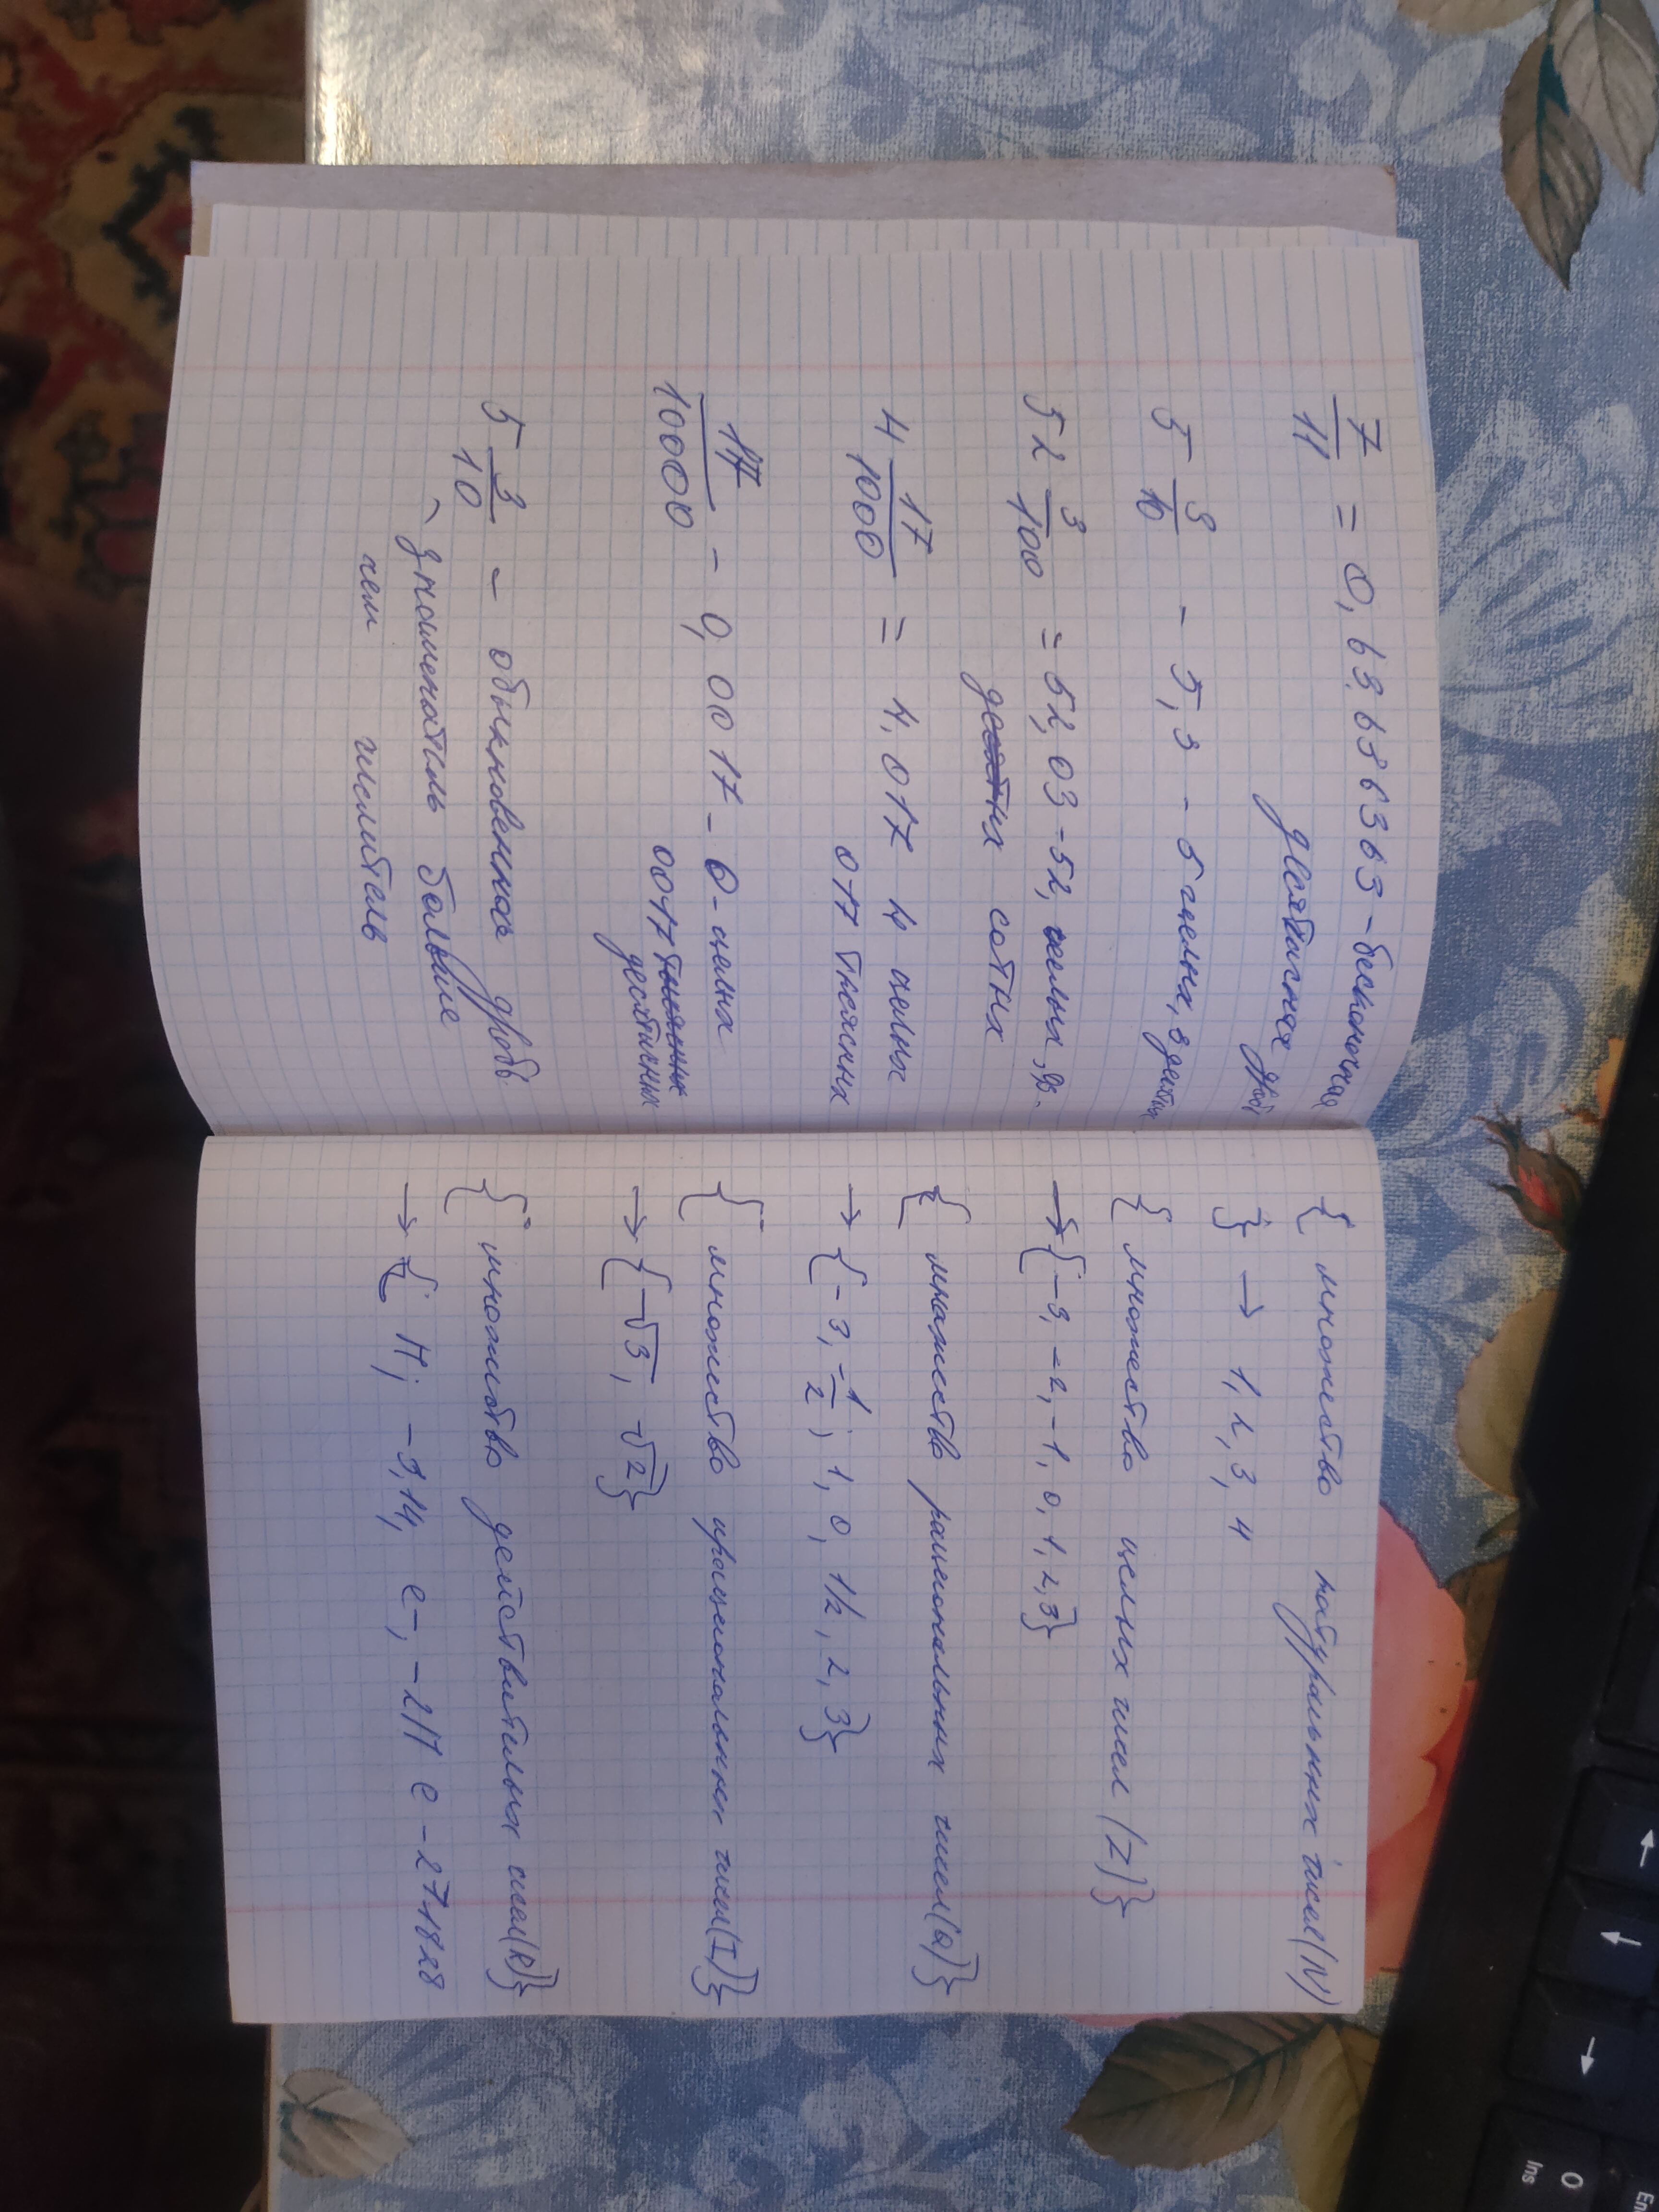 7/11 = 0,63636363 - бесконечная
десятичная дробь
5 3/10 - 5,3 - 5 целых, 3 десятых
52 3/100 = 52,03 - 52, целых, 03 -
сотых
4 17/1000 = 4,017 4 целых
017 тысячных
17/10000 - 0,0017 - 0 - целых
0017 тысячных
десятичных
5 3/10 - обыкновенная дробь
знаменатель больше
чем числитель
{ множество натуральных чисел (N)
} → 1, 2, 3, 4
{ множество целых чисел (Z)}
→ {-3, -2, -1, 0, 1, 2, 3}
{ множество рациональных чисел (Q)}
→ {-3, -1/2; 1, 0, 1/2, 2, 3}
{ множество иррациональных чисел (I)}
→ {√3, √2}
{ множество действительных чисел (R)}
→ { π; -3,14, e-, -2π e - 271828
Ins
0